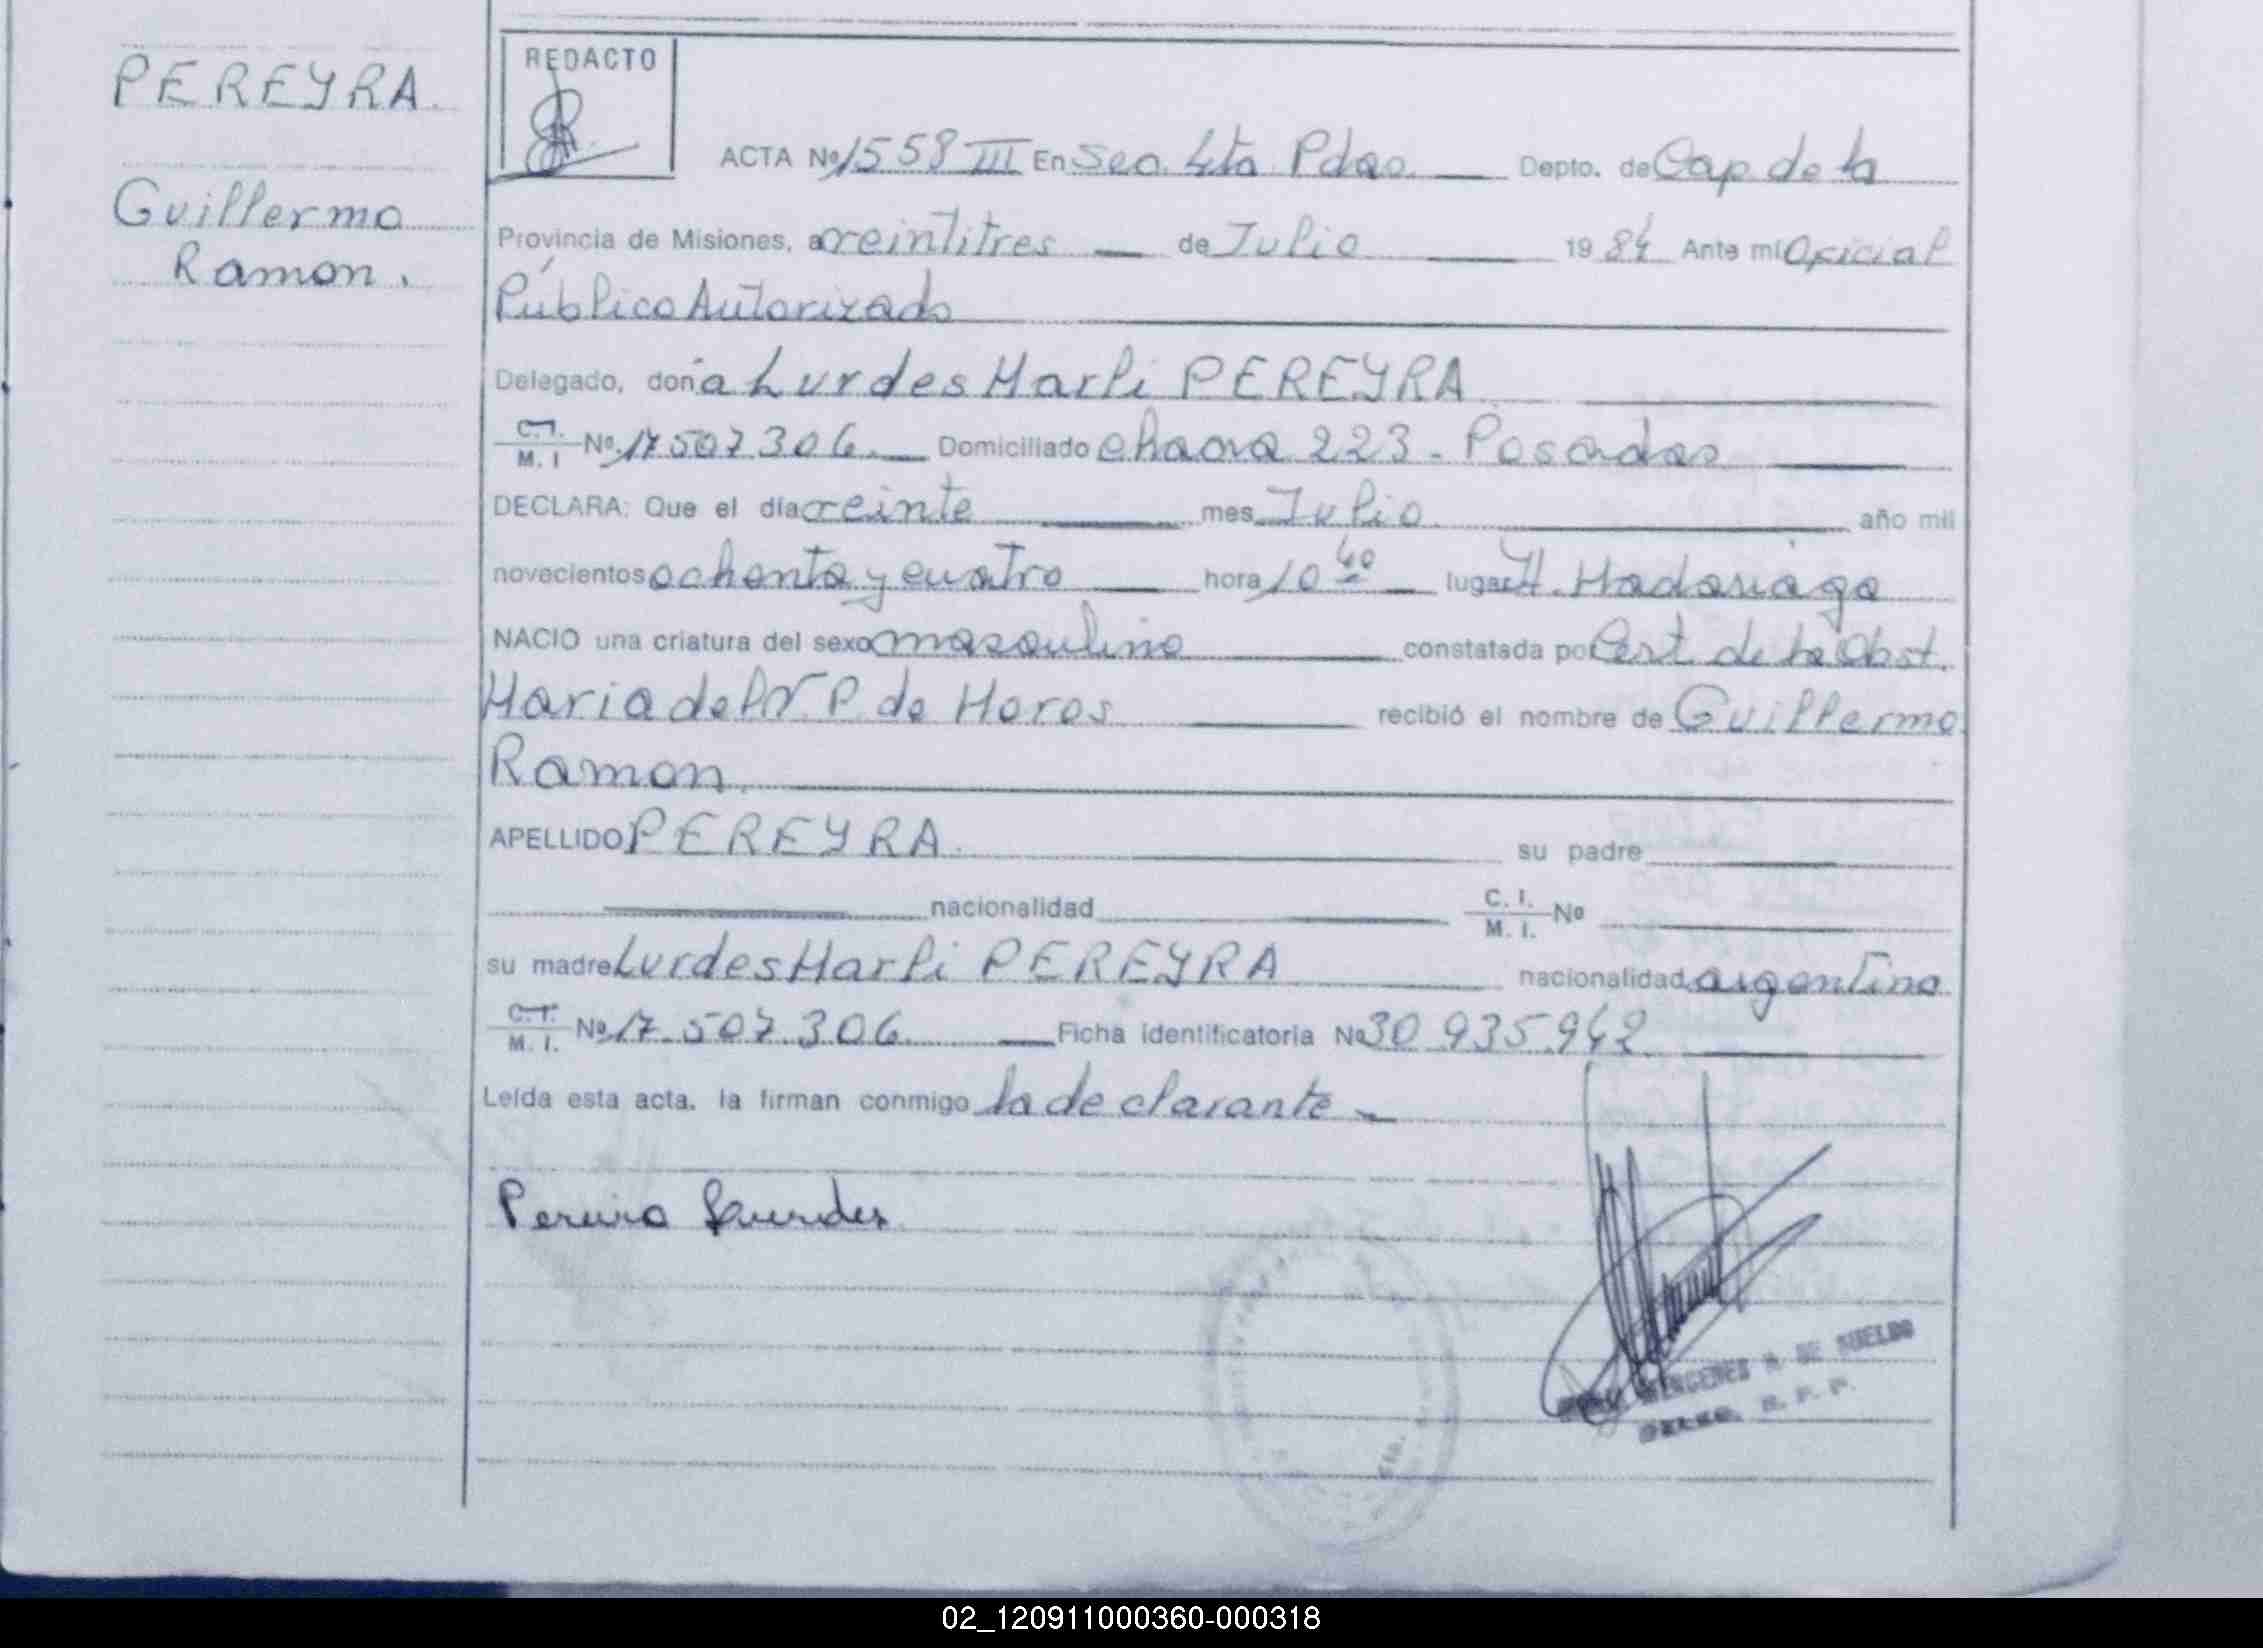 PEREYRA.
Guillermo
Ramon.
REDACTO
ACTA Nº 1558 III En Sec. 4ta Pdas. Depto. de Cap de la
Provincia de Misiones, a veintitres de Julio 1984 Ante mí Oficial
Público Autorizado
Delegado, doña Lurdes Marli PEREYRA
C.I. M. I Nº 17 507 306. Domiciliado chacra 223 - Posadas
DECLARA: Que el día veinte mes Julio año mil
novecientos ochenta y cuatro hora 10 40 lugar H. Madariaga
NACIO una criatura del sexo masculino constatada por Cert. de la Obst.
Maria del V. P. de Meres recibió el nombre de Guillermo
Ramon
APELLIDO PEREYRA. su padre
nacionalidad C. I. M. I. Nº
su madre Lurdes Marli PEREYRA nacionalidad argentina
C.I. M. I. Nº 17.507.306. Ficha identificatoria Nº 30 935.942
Leída esta acta, la firman conmigo la declarante
Pereira Lourdes
DE SUELDO
02_120911000360-000318